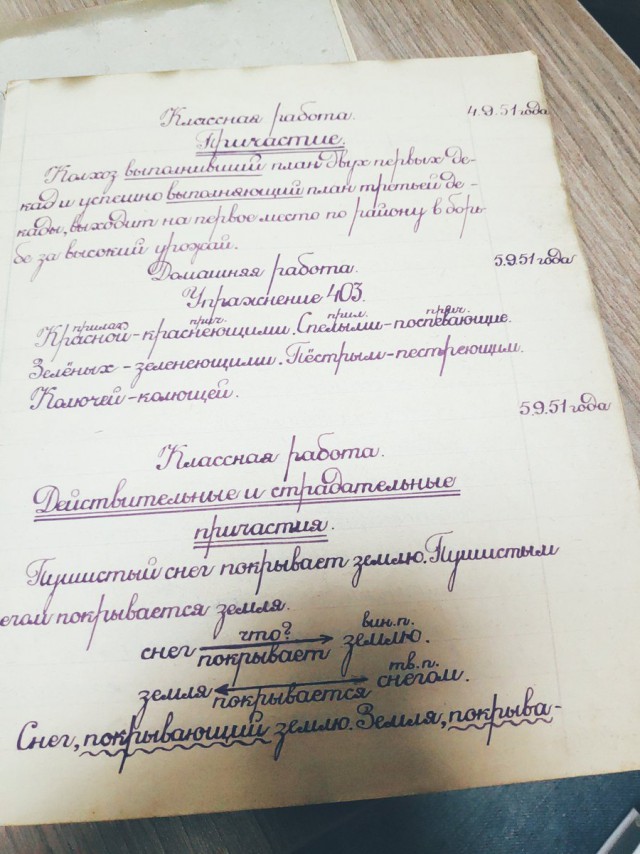 4.9.51 года
Классная работа.
Причастие.
Колхоз выполнивший план двух первых де-
кад и успешно выполняющий план третьей де-
кады, выходит на первое место по району в борь-
бе за высокий урожай.
5.9.51 года
Домашняя работа.
Упражнение 403.
прилаг. прич. прил. прич.
Красной-краснеющими. Спелыми-поспевающие.
Зелёных-зеленеющими. Пёстрым-пестреющим.
Колючей-колющей.
5.9.51 года
Классная работа.
Действительные и страдательные
причастия.
Пушистый снег покрывает землю. Пушистым
егом покрывается земля.
что? вин.п.
снег покрывает землю.
тв.п.
земля покрывается снегом.
Снег, покрывающий землю. Земля, покрыва-